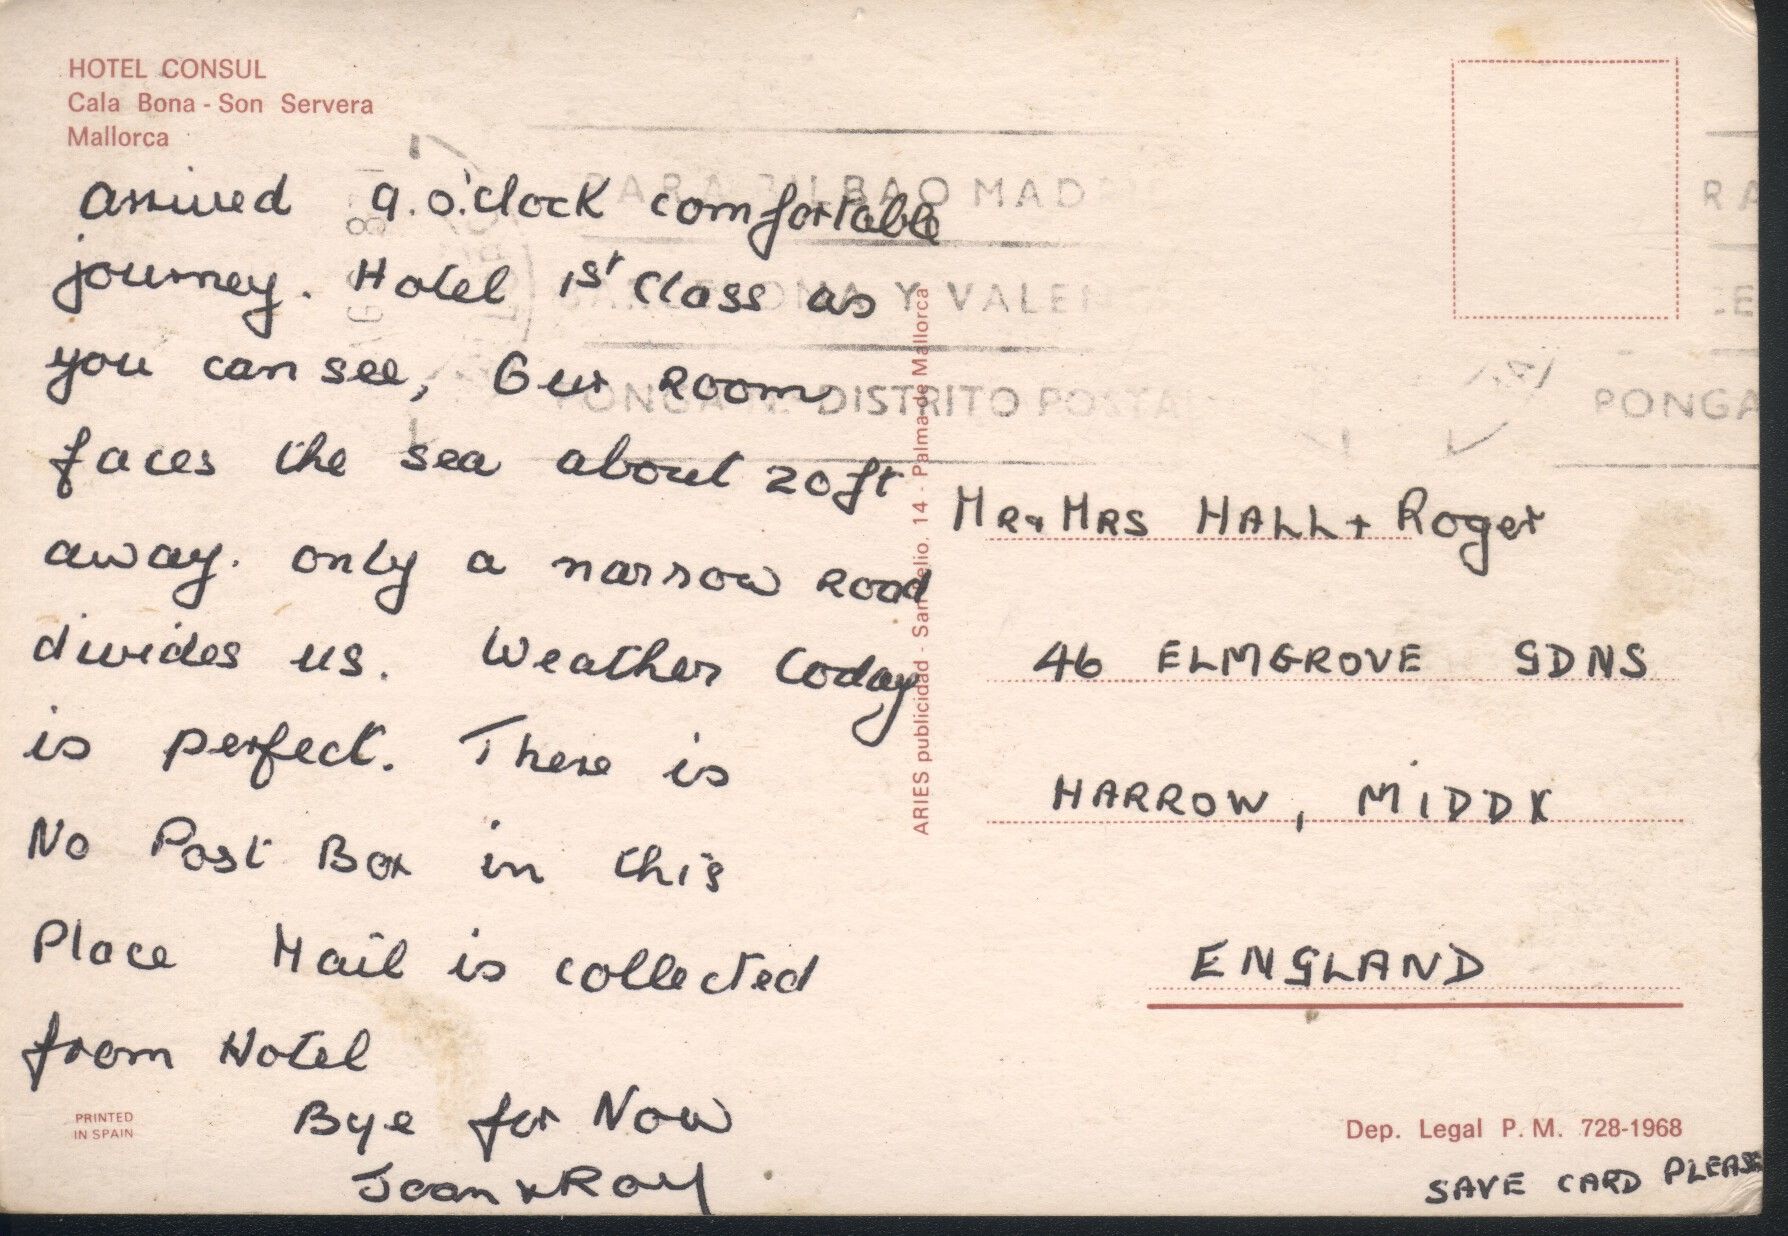 HOTEL CONSUL
Cala Bona - Son Servera
Mallorca
arrived 9.o'clock comfortable
journey. Hotel 1st Class as
you can see, Our Room
faces the sea about 20 ft
away. only a narrow Road
divides us. Weather today
is perfect. There is
No Post Box in this
Place Mail is collected
from Hotel
Bye for Now
Joan & Roy
PRINTED
IN SPAIN
PARA BILBAO MAD
Y VALEN
PONGA DISTRITO POSTA
RA
CE
PONGA
ARIES publicidad - San 14 - Palma de Mallorca
MR & MRS HALL + Roger
46 ELMGROVE GDNS
HARROW, MIDDX
ENGLAND
Dep. Legal P. M. 728-1968
SAVE CARD PLEASE